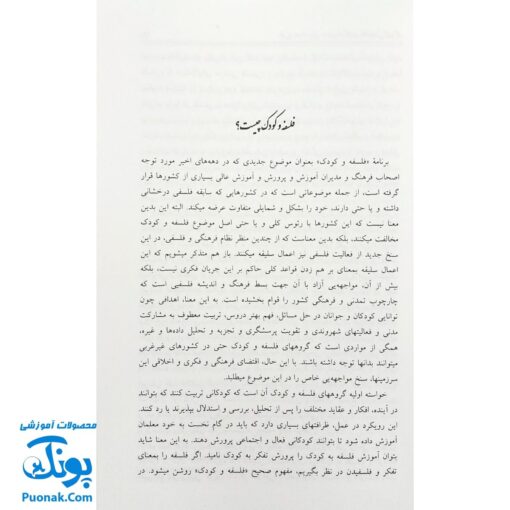 فلسفه و کودک چیست؟
برنامهٔ «فلسفه و کودک» بعنوان موضوع جدیدی که در دهه‌های اخیر مورد توجه
اصحاب فرهنگ و مدیران آموزش و پرورش و آموزش عالی بسیاری از کشورها قرار
گرفته است، از جمله موضوعاتی است که در کشورهایی که سابقه فلسفی درخشانی
داشته و یا حتی دارند، خود را بشکل و شمایلی متفاوت عرضه میکند. البته این بدین
معنا نیست که این کشورها با رئوس کلی و یا حتی اصل موضوع فلسفه و کودک
مخالفت میکنند، بلکه بدین معناست که از چندین منظر نظام فرهنگی و فلسفی، در این
سنخ جدید از فعالیت فلسفی نیز اعمال سلیقه میکنند. باز هم متذکر میشویم که این
اعمال سلیقه بمعنای بر هم زدن قواعد کلی حاکم بر این جریان فکری نیست، بلکه
بیش از آن، مواجهه‌یی آزاد با آن جهت بسط فرهنگ و اندیشه فلسفیی است که
چارچوب تمدنی و فرهنگی کشور را قوام بخشیده است. به این معنا، اهدافی چون
توانایی کودکان و جوانان در حل مسائل، فهم بهتر دروس، تربیت معطوف به مشارکت
مدنی و فعالیتهای شهروندی و تقویت پرسشگری و تجزیه و تحلیل داده‌ها و غیره،
همگی از مواردی است که گروههای فلسفه و کودک حتی در کشورهای غیرغربی
میتوانند بدانها توجه داشته باشند. با این حال، اقتضای فرهنگی و فکری و اخلاقی این
سرزمینها، سنخ مواجهه‌یی خاص را در این موضوع میطلبد.
خواسته اولیه گروههای فلسفه و کودک آن است که کودکانی تربیت کنند که بتوانند
در آینده، افکار و عقاید مختلف را پس از تحلیل، بررسی و استدلال بپذیرند یا رد کنند.
این رویکرد در عمل، ظرافتهای بسیاری دارد که باید در گام نخست به خود معلمان
آموزش داده شود تا بتوانند کودکانی فعال و اجتماعی پرورش دهند. به این معنا شاید
بتوان آموزش فلسفه به کودک را پرورش تفکر به کودک نامید. اگر فلسفه را بمعنای
تفکر و فلسفیدن در نظر بگیریم، مفهوم صحیح «فلسفه و کودک» روشن میشود. در
محصولات آموزشی
پونک
Puonak.Com